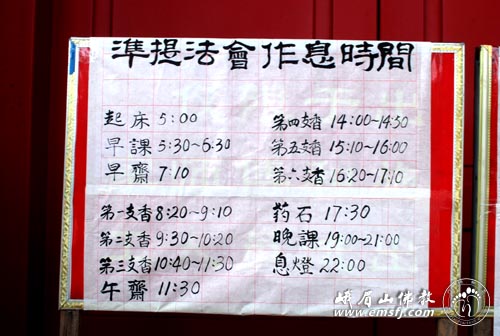 準提法會作息時間
起床 5:00
早課 5:30~6:30
早齋 7:10
第一支香 8:20~9:10
第二支香 9:30~10:20
第三支香 10:40~11:30
午齋 11:30
第四支香 14:00~14:50
第五支香 15:10~16:00
第六支香 16:20~17:10
药石 17:30
晚課 19:00~21:00
息燈 22:00
峨眉山佛教
www.emsfj.com